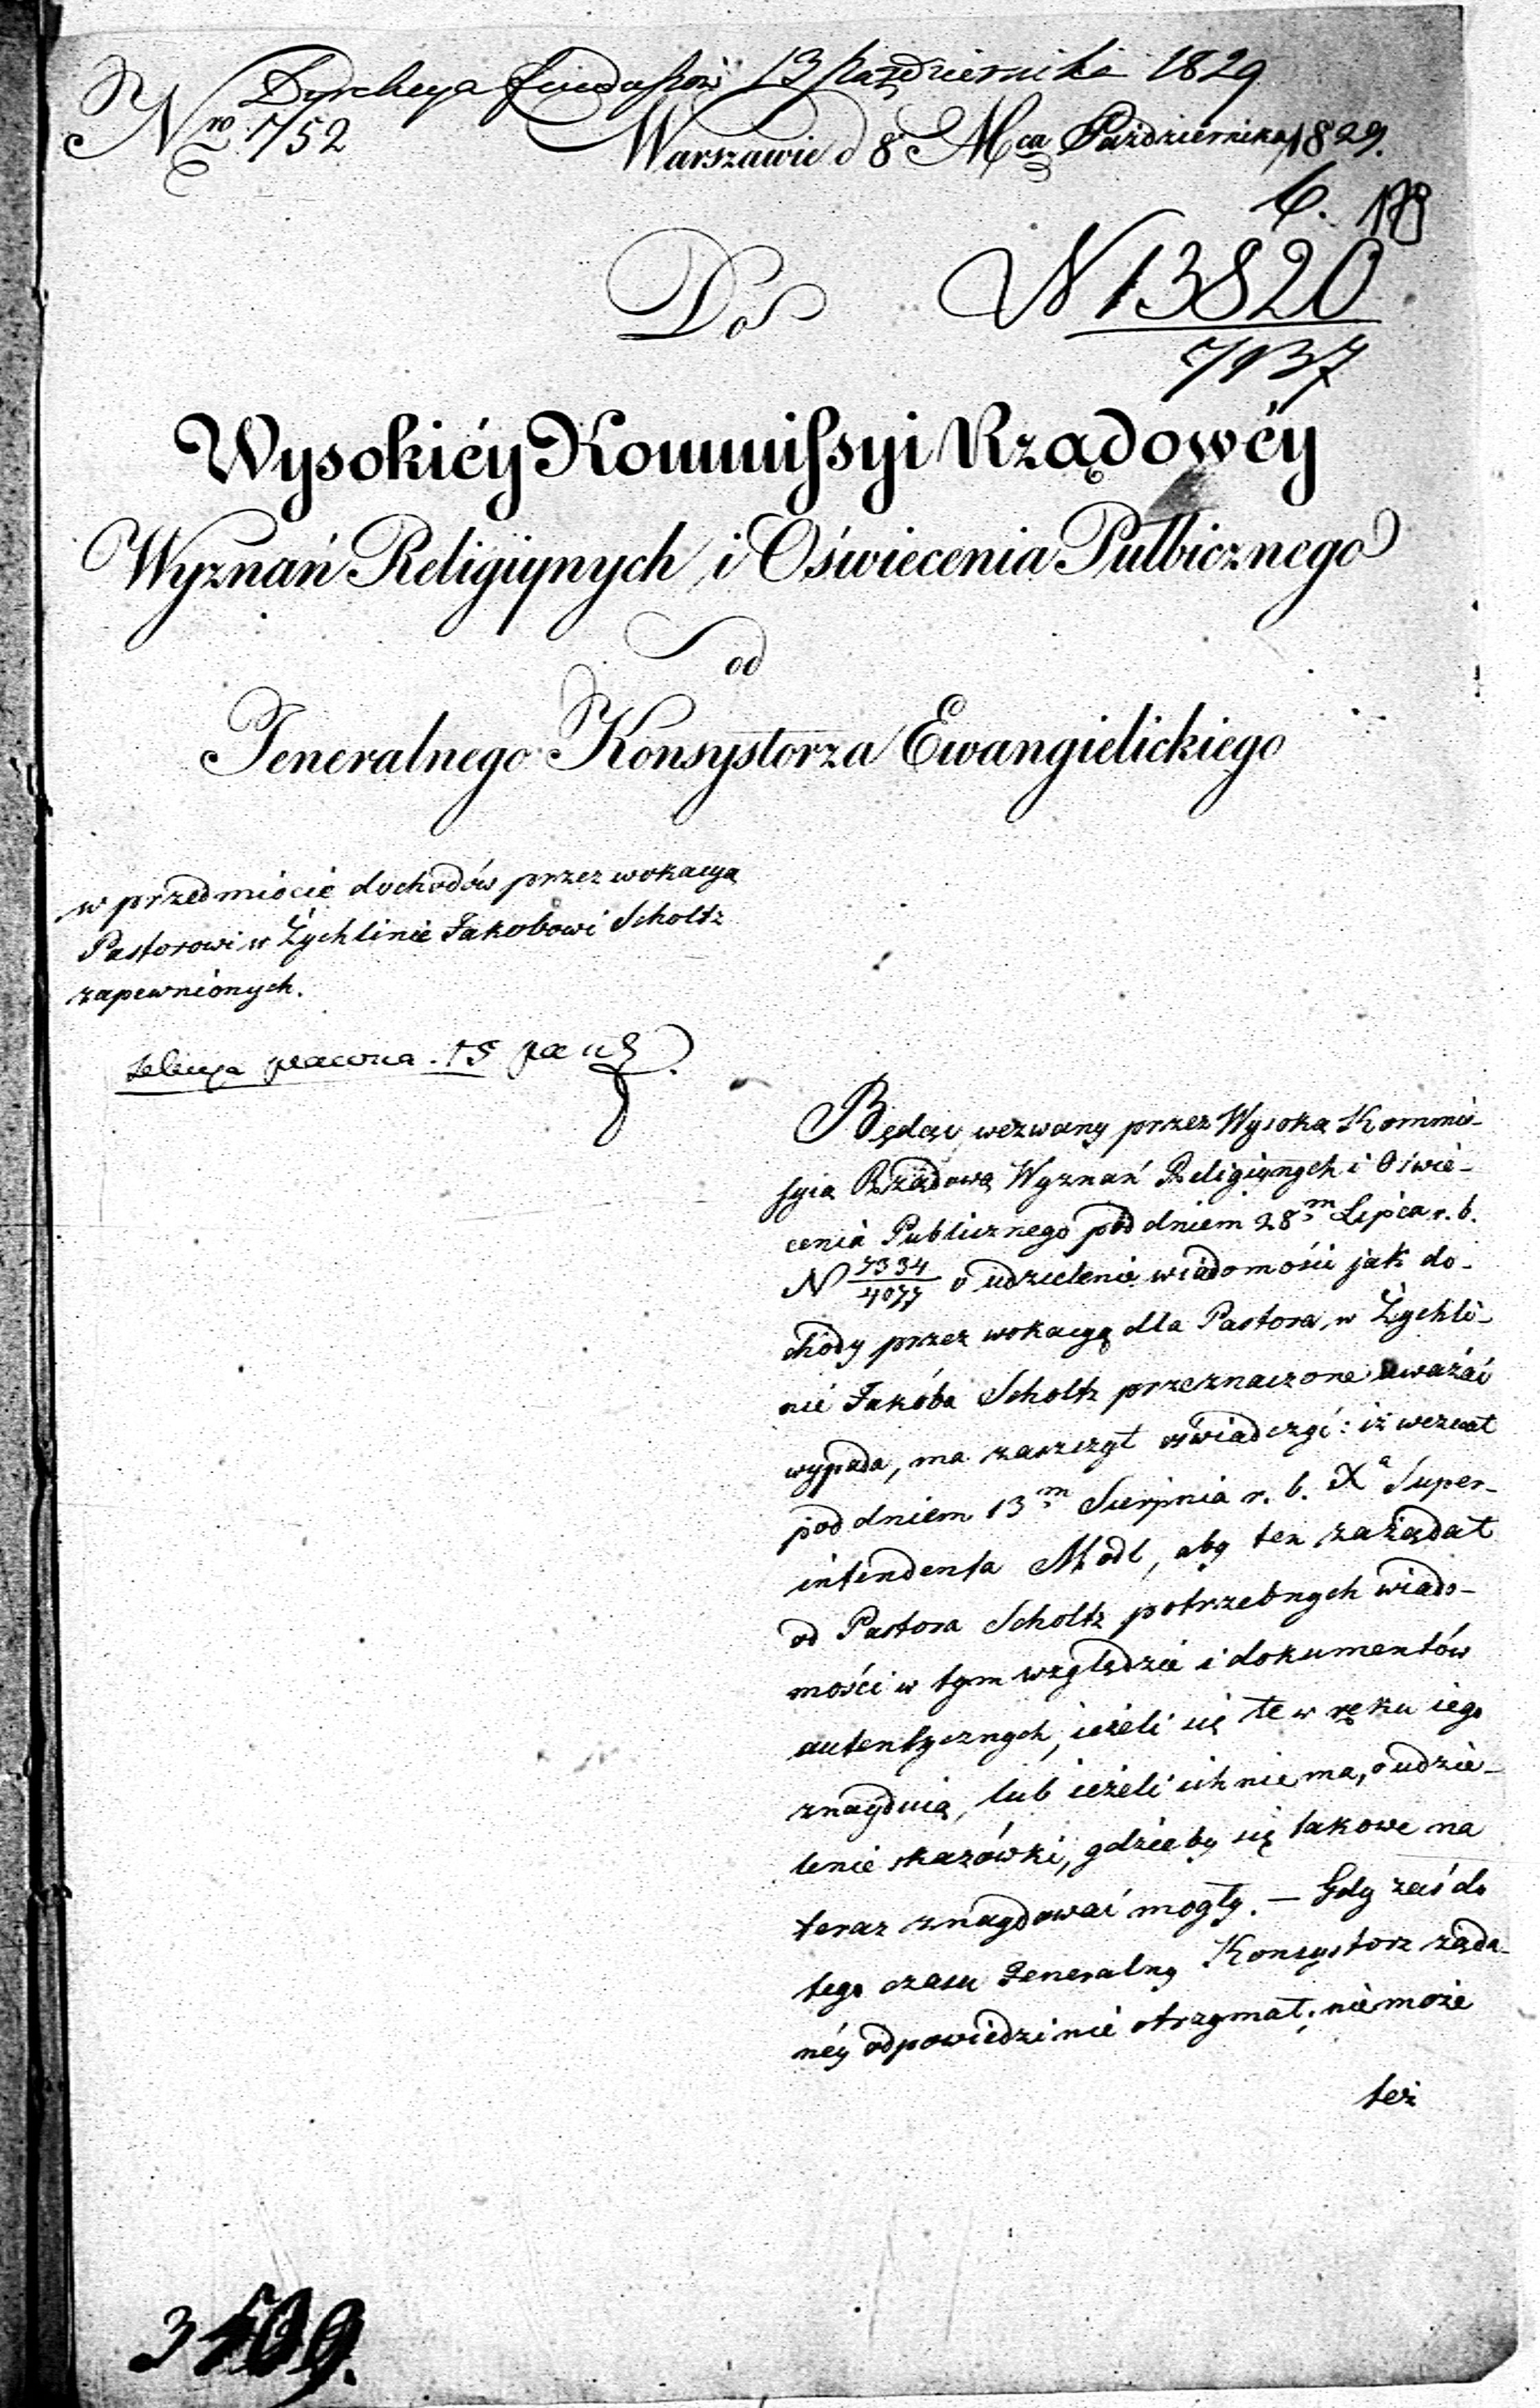 Dyrekcya funduszów 13 Października 1829
Nro 1752 Warszawie d 8 Mca Października 1829.
N 13820
7137
Do
Wysokiéy Kommissyi Rządowéy
Wyznań Religiynych i Oświecenia Pulbicznego
od
Jeneralnego Konsystorza Ewangielickiego
w przedmiocie dochodów przez wokacyą
Pastorowi w Żychlinie Jakobowi Scholtz
zapewnionych.
Będąc wezwany przez Wysoką Kommis-
syią Rządową Wyznań Religiynych i Oświe-
cenia Publicznego pod dniem 28m Lipca r. b.
N 7334/4077 o udzielenie wiadomości jak do-
chody przez wokacyą dla Pastora w Żychli-
nie Jakóba Scholtz przeznaczone uważać
wypada, ma zaszczyt oświadczyć: iż wezwał
pod dniem 13m Sierpnia r. b. Xa Super-
intendenta Modl, aby ten zażądał
od Pastora Scholtz potrzebnych wiado-
mości w tym względzie i dokumentów
autentycznych, ieżeli się te w ręku iego
znayduią, lub ieżeli ich nie ma, o udzie-
lenie skazówki, gdzieby się takowe na
teraz znaydować mogły. — Gdy zaś do
tego czasu Jeneralny Konsystorz żąda-
néy odpowiedzi nie otrzymał; nie może
też